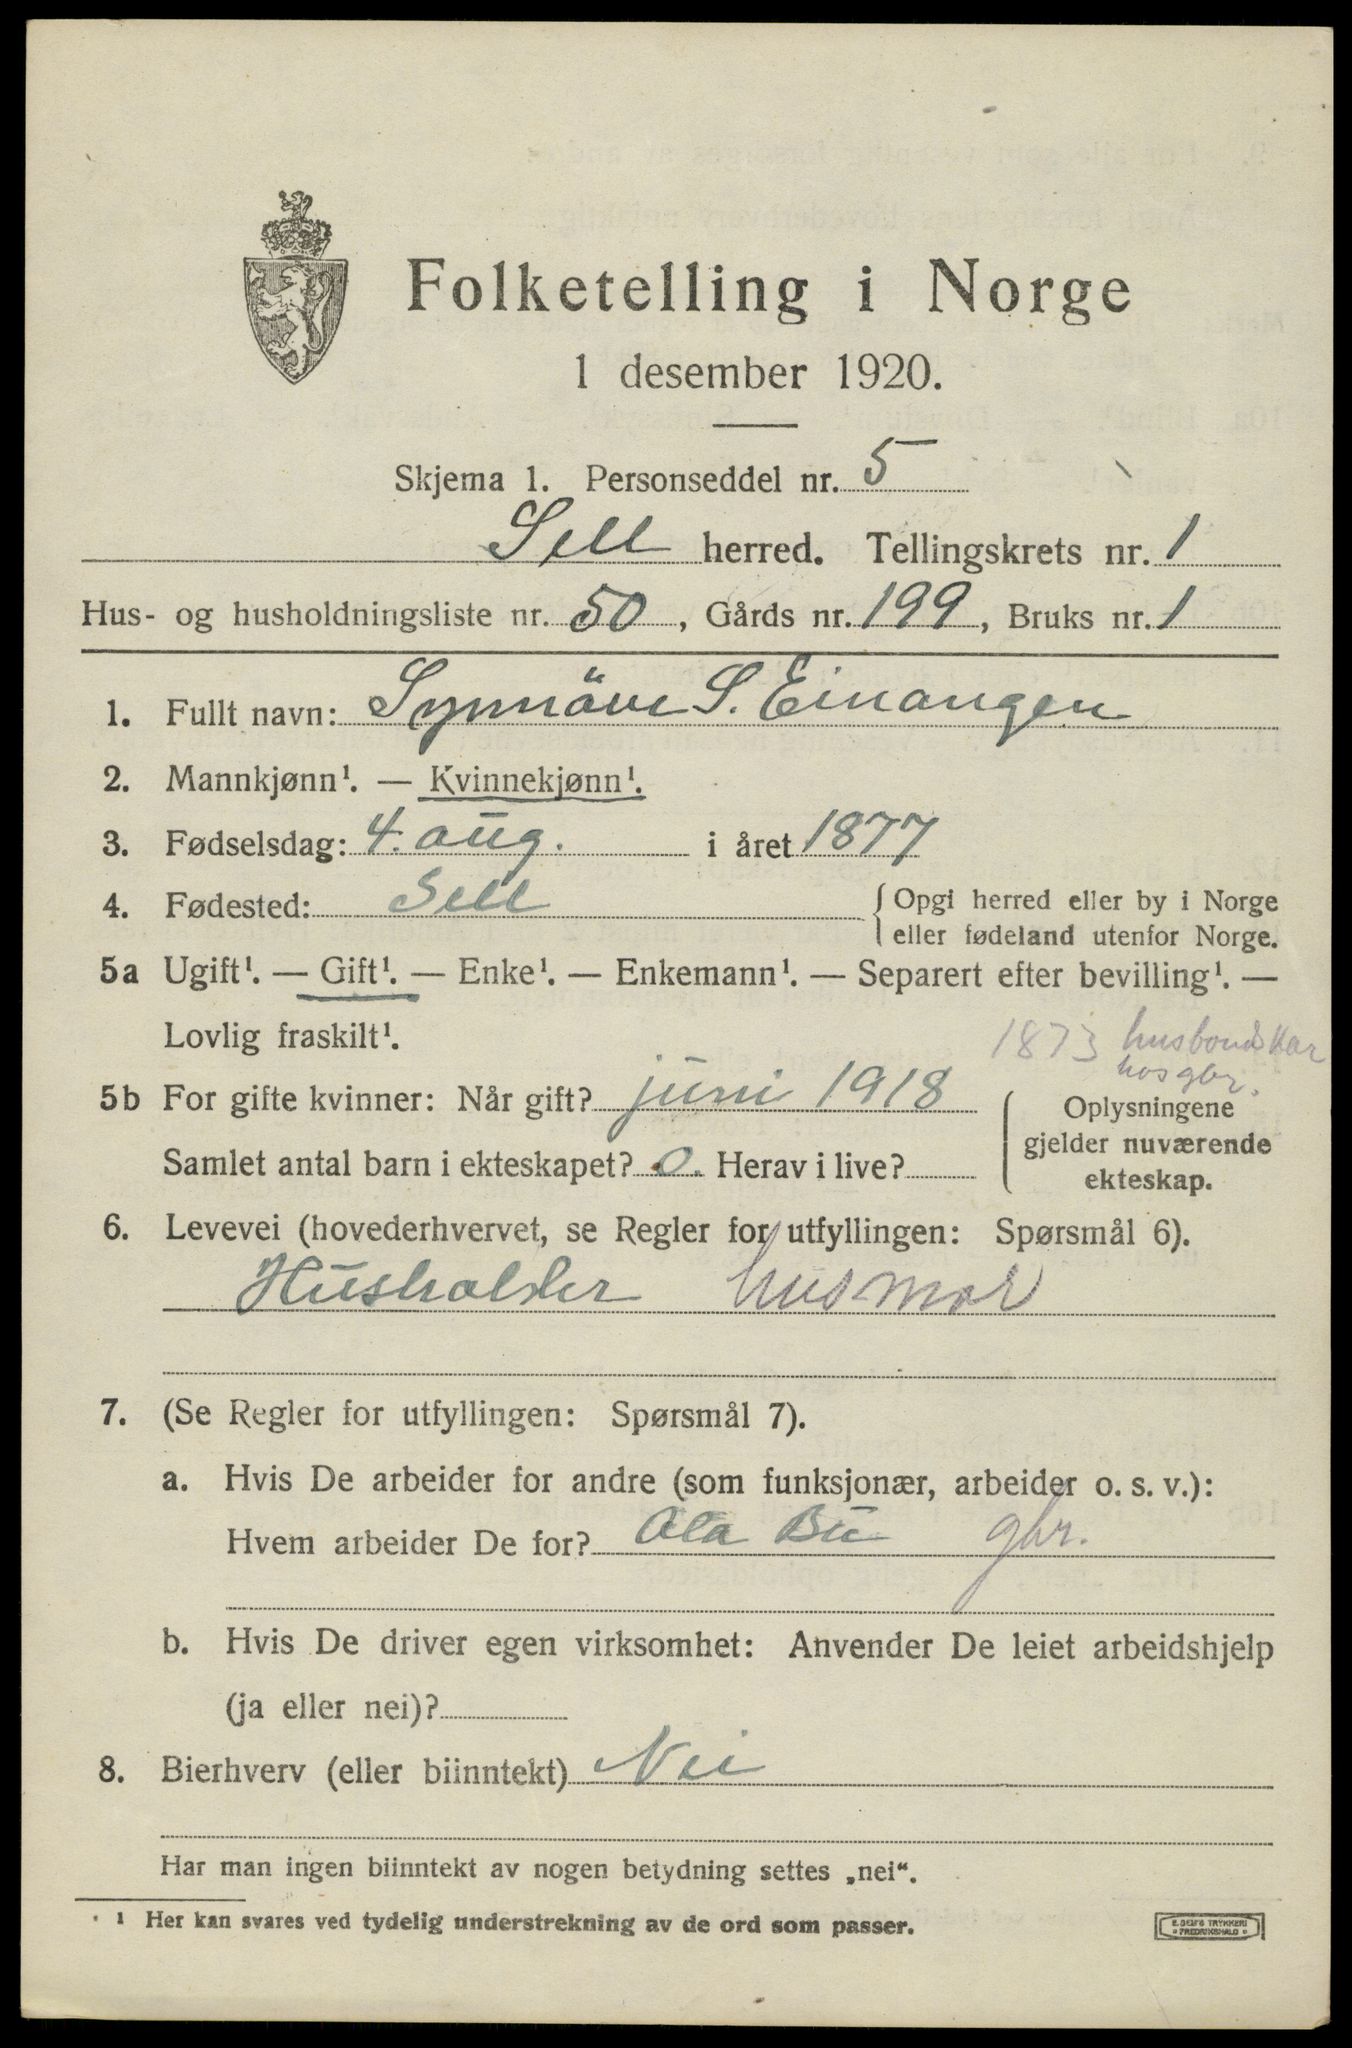 Folketelling i Norge
1 desember 1920.
Skjema 1. Personseddel nr. 5
Sell herred. Tellingskrets nr. 1
Hus- og husholdningsliste nr. 50, Gårds nr. 199, Bruks nr. 1
1. Fullt navn: Synnöve S. Einangen
2. Mannkjønn¹. — Kvinnekjønn¹.
3. Fødselsdag: 4. aug. i året 1877
4. Fødested: Sell { Opgi herred eller by i Norge
eller fødeland utenfor Norge.
5a Ugift¹. — Gift¹. — Enke¹. — Enkemann¹. — Separert efter bevilling¹. —
Lovlig fraskilt¹.
1873 husbonds kar
hos gbr.
5b For gifte kvinner: Når gift? juni 1918
Samlet antal barn i ekteskapet? 0. Herav i live?
Oplysningene
gjelder nuværende
ekteskap.
6. Levevei (hovederhvervet, se Regler for utfyllingen: Spørsmål 6).
Husholder husmor
7. (Se Regler for utfyllingen: Spørsmål 7).
a. Hvis De arbeider for andre (som funksjonær, arbeider o. s. v.):
Hvem arbeider De for? Ola Bu gbr.
b. Hvis De driver egen virksomhet: Anvender De leiet arbeidshjelp
(ja eller nei)?
8. Bierhverv (eller biinntekt) Nei
Har man ingen biinntekt av nogen betydning settes „nei“.
¹ Her kan svares ved tydelig understrekning av de ord som passer.
E. SEM'S TRYKKERI
FREDRIKSHALD